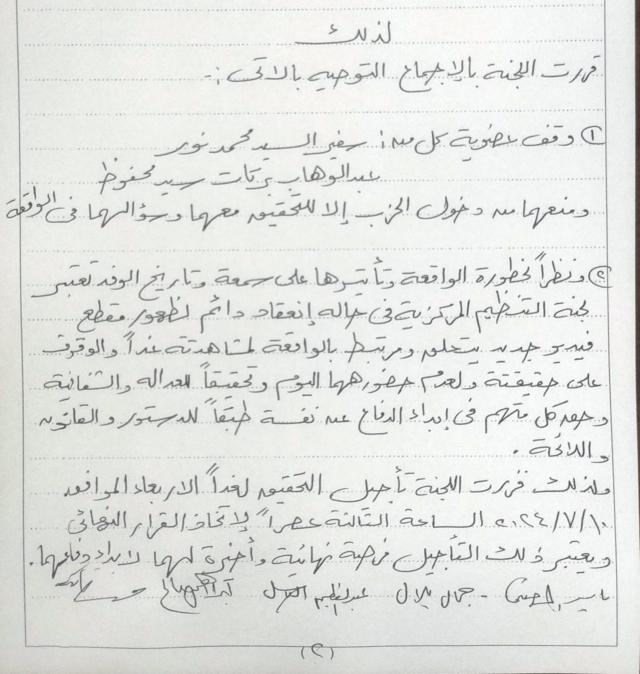 لذلك
قررت اللجنة بالإجماع التوصيه بالاتى :-
① وقف عضوية كل من : سفير السيد محمد نور
عبدالوهاب بركات سيد محفوظ
ومنعهما من دخول الحزب إلا للتحقيق معهما وسؤالهما فى الواقعة
② ونظراً لخطورة الواقعة وتأثيرها على سمعة وتاريخ الوفد تعتبر
لجنة التنظيم المركزية فى حاله إنعقاد دائم لظهور مقطع
فيديو جديد يتعلق ومرتبط بالواقعة لمشاهدتة غداً والوقوف
على حقيقتة ولعدم حضورهما اليوم وتحقيقاً للعداله والشفافية
وحق كل متهم فى إبداء الدفاع عن نفسة طبقاً للدستور والقانون
واللائحة .
ولذلك قررت اللجنة تأجيل التحقيق لغداً الاربعاء الموافق
٢٠٢٤/٧/١٠ الساعة الثالثة عصراً لإتخاذ القرار النهائى
ويعتبر ذلك التأجيل فرصة نهائية وأخيرة لهما لابداء دفاعهما .
ياسر - جمال بلال عبدالعظيم
(٢)